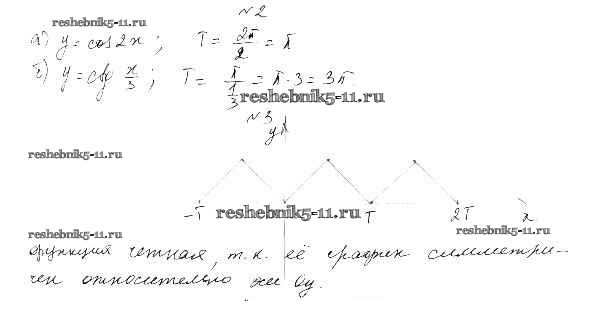 №2
reshebnik5-11.ru
а) y = cos 2x; T = 2π/2 = π
б) y = ctg x/3; T = π/(1/3) = π · 3 = 3π
reshebnik5-11.ru
№3
y
reshebnik5-11.ru
-T T 2T x
reshebnik5-11.ru
reshebnik5-11.ru
reshebnik5-11.ru
функция четная, т.к. её график симметри-
чен относительно оси Oy.